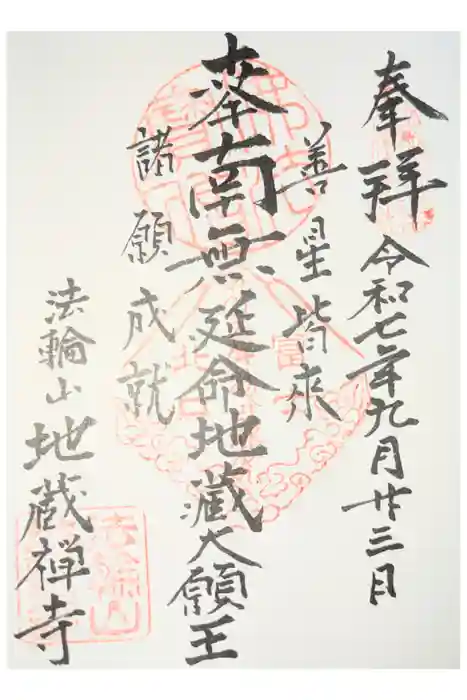 奉拝
令和七年九月廿三日
善星皆来
奉南無延命地蔵大願王
諸願成就
法輪山
地蔵禅寺